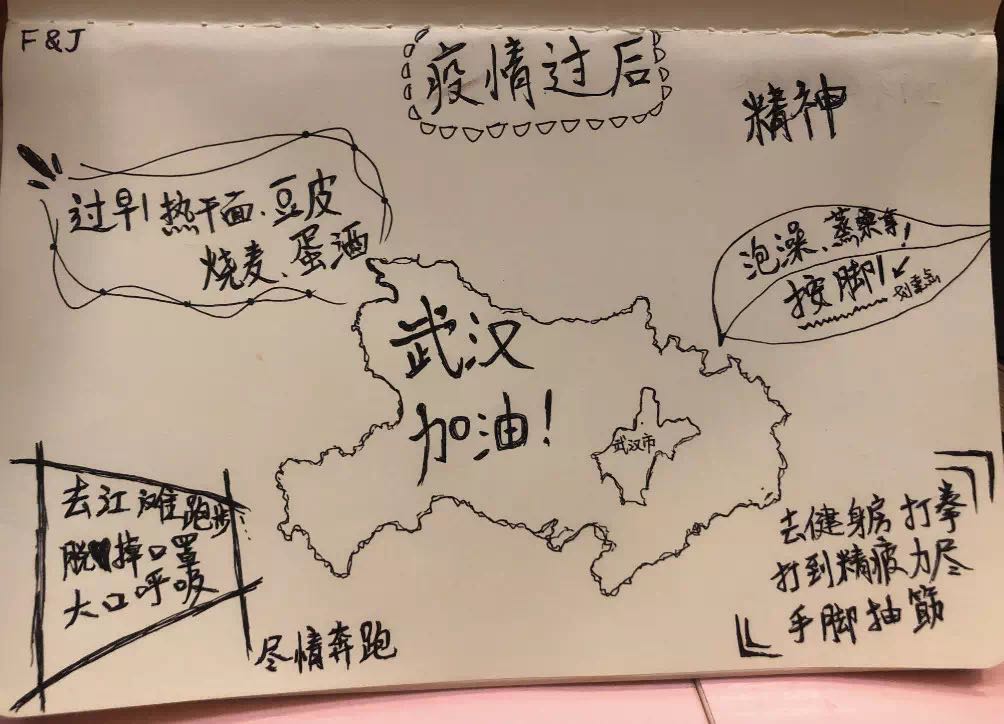 F&J
疫情过后
精神
过早!热干面、豆皮
烧麦、蛋酒
泡澡、蒸桑拿!
按脚!
划重点
武汉
加油!
武汉市
去江滩跑步
脱掉口罩
大口呼吸
尽情奔跑
去健身房打拳
打到精疲力尽
手脚抽筋